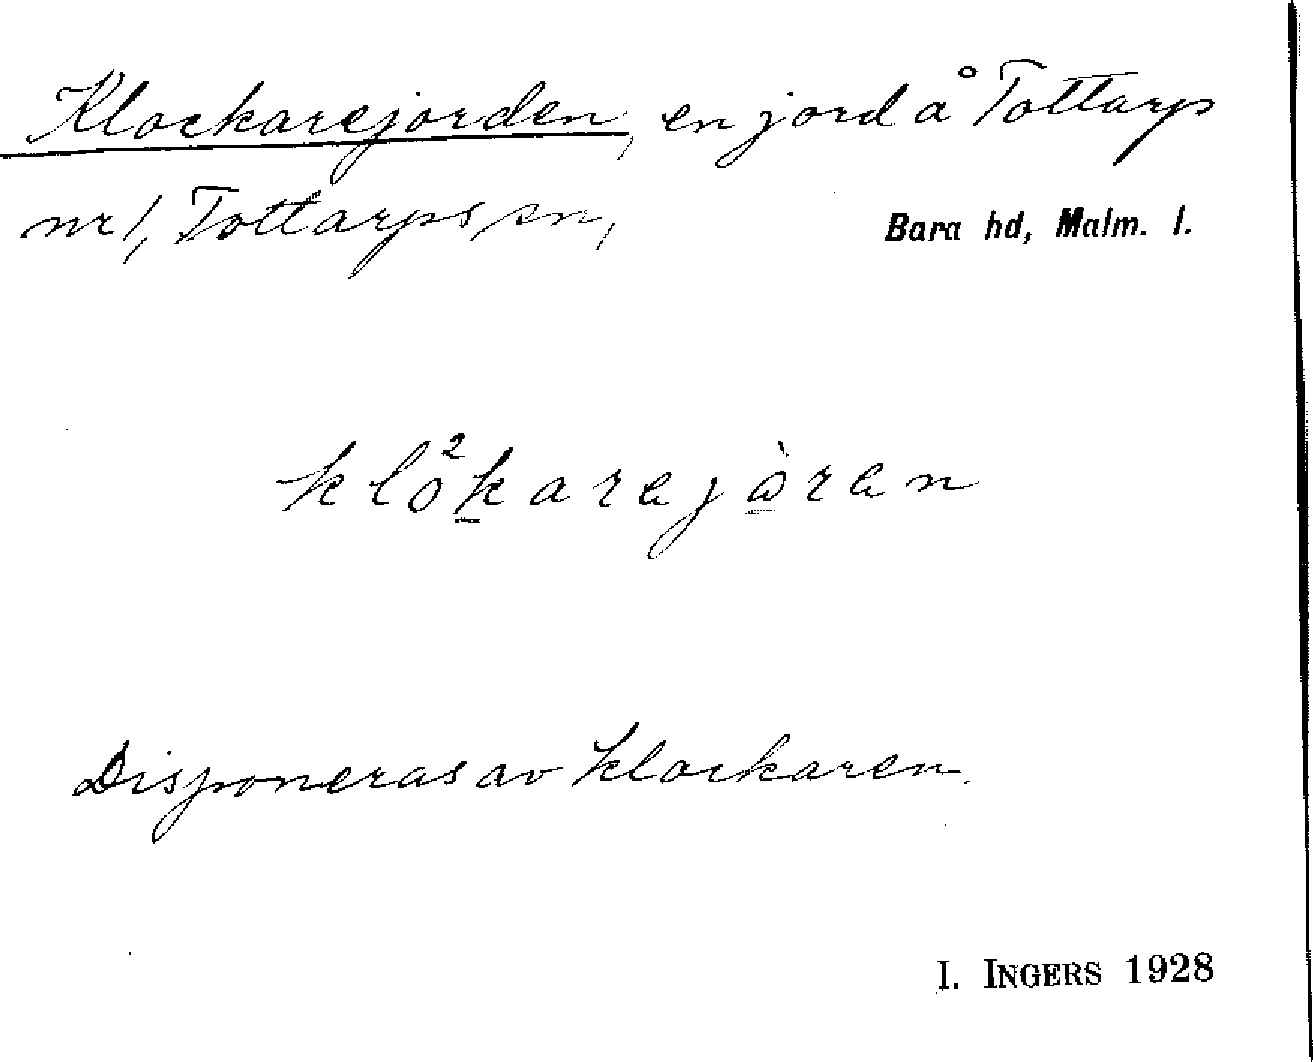 Klockarejorden, en jord å Tottarps
nr 1, Tottarps sn,
Bara hd, Malm. l.
klo²karejòren
Disponeras av klockaren.
I. INGERS 1928